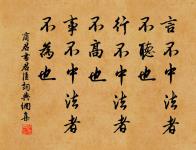 言不中法者
不聽也
行不中法者
不高也
事不中法者
不為也
商君書君臣詞典網集